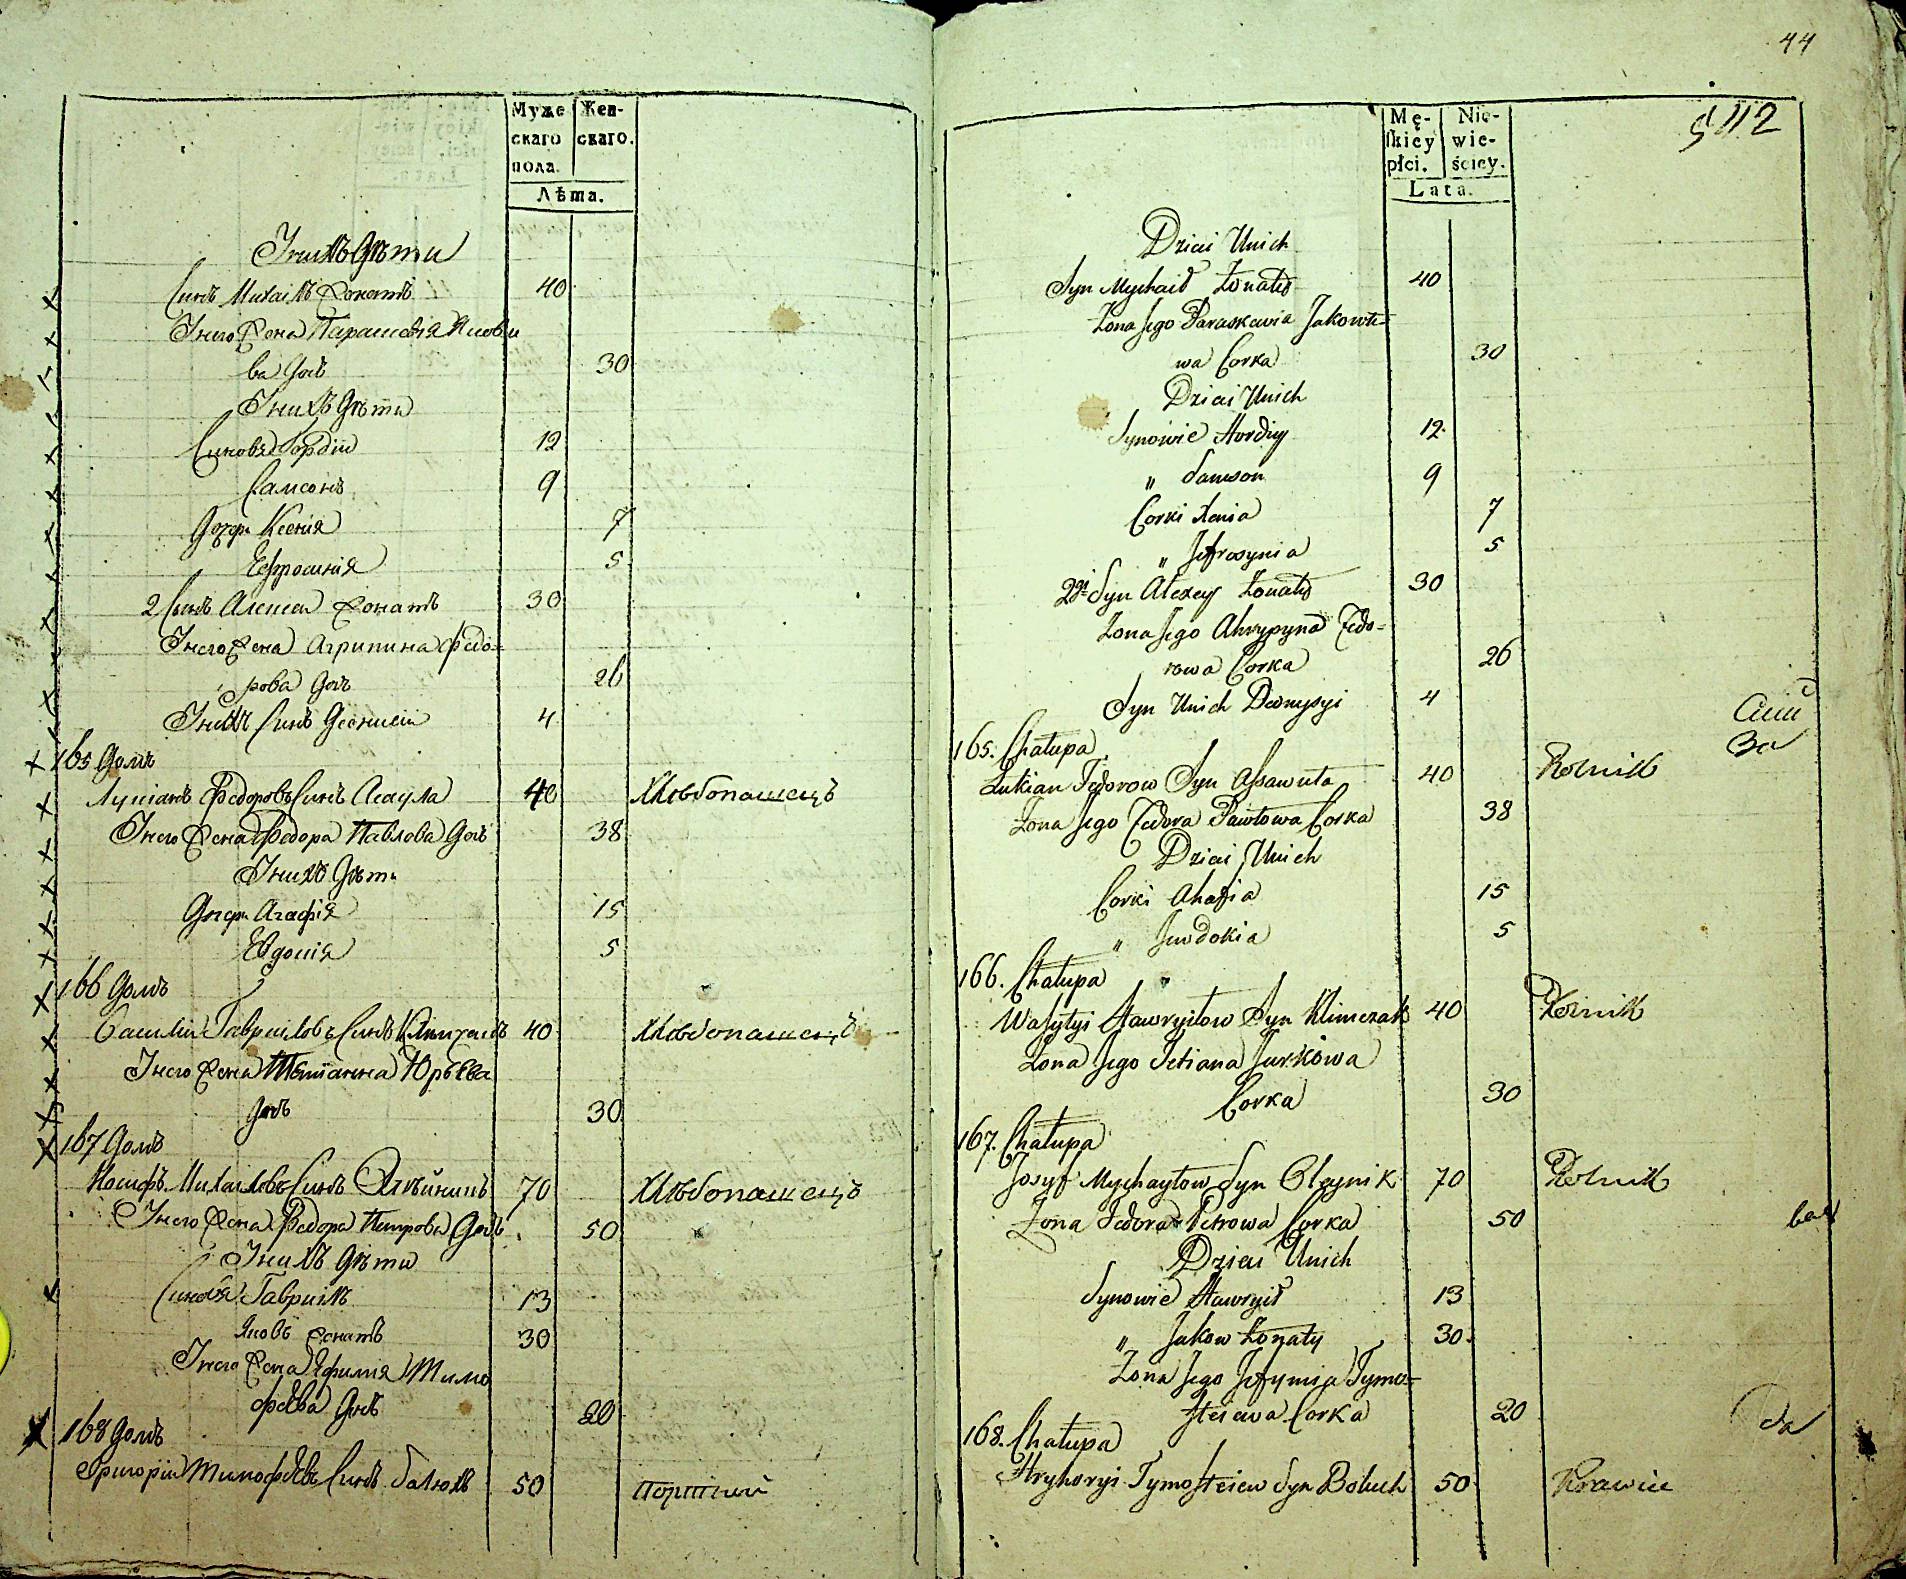 Муже
скаго
пола.
Жен-
скаго.
Лѣта.
У нихъ дѣти
Синъ Михаилъ женатъ 40
У него жена Параскевія Якови
ва дочь 30
У нихъ дѣти
Синовя Гордій 12
Самсонъ 9
Дочери Ксенія 7
Ефросинія 5
2 Синъ Алексей женатъ 30
У него жена Агрипина Федо=
рова дочь 26
У нихъ Синъ Деонисій 4
165 Домъ
Лукіанъ Федоровъ Синъ Асаула 40 Хлѣбопашецъ
У него жена Федора Павлова дочь 38
У нихъ дѣти
Дочери Агафія 15
Евдокія 5
166 Домъ
Василій Гавриловъ Синъ 40 Хлѣбопашецъ
У него жена Тетіанна Юрьева
дочь 30
167 Домъ
Иосифъ Михаиловъ Синъ Олѣйникъ 70 Хлѣбопашецъ
У него жена Федора Петрова дочь 50
У нихъ дѣти
Синовя Гавриілъ 13
Яковъ женатъ 30
У него жена Ефимия Тимо
феева дочь 20
168 Домъ
Григорій Тимофѣевъ Синъ Балюхъ 50 Портний
44
5112
Mę-
skiey
płci.
Nie-
wie-
ściey.
Lata.
Dzieci Unich
Syn Mychaił Żonaty 40
Żona Jego Paraskewia Jakowle=
wa Corka 30
Dzieci Unich
Synowie Hordiy 12
„ Samson 9
Corki Xenia 7
„ Jefrosynia 5
2gi Syn Alexey Żonaty 30
Żona Jego Ahrypyna Fedo=
rowa Corka 26
Syn Unich Deonysyi 4
165. Chałupa
Łukian Fedorow Syn Assawuła 40 Rolnik
Żona Jego Fedora Pawłowa Corka 38
Dzieci Unich
Corki Ahafia 15
„ Juwdokia 5
166. Chałupa
Wasylyi Hawryiłow Syn Klimczak 40 Rolnik
Żona Jego Tetiana Jurkowa
Corka 30
167. Chałupa
Josyf Mychayłow Syn Oleynik 70 Rolnik
Żona Fedora Petrowa Corka 50
Dzieci Unich
Synowie Hawryił 13
„ Jakow Żonaty 30
Żona Jego Jefymija Tymo=
fteiewa Corka 20
168. Chałupa
Hryhoryi Tymofteiew Syn Boluch 50 Krawiec